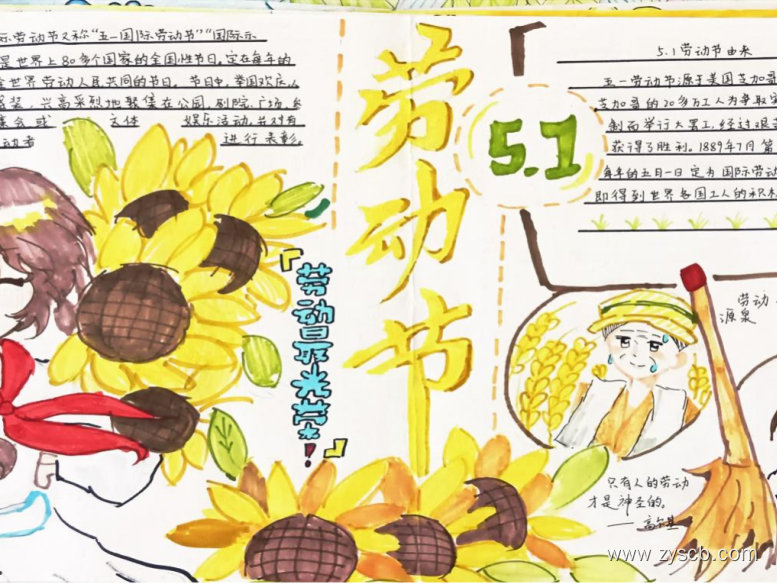 际劳动节又称"五一国际劳动节""国际示
是世界上80多个国家的全国性节日。定在每年的
全世界劳动人民共同的节日。节日中,举国欢庆,人
盛装,兴高采烈地聚集在公园、剧院、广场,参
集会或 文体 娱乐活动,并对有
动者 进行表彰。
劳动节
『劳动最光荣!』
5.1
5.1劳动节由来
五一劳动节源于美国芝加哥
芝加哥的20多万工人为争取实
制而举行大罢工,经过艰苦
获得了胜利。1889年7月 第
每年的五月一日定为国际劳动
即得到世界各国工人的积极
劳动
源泉
只有人的劳动
才是神圣的。
——高尔基
www.zyscb.com